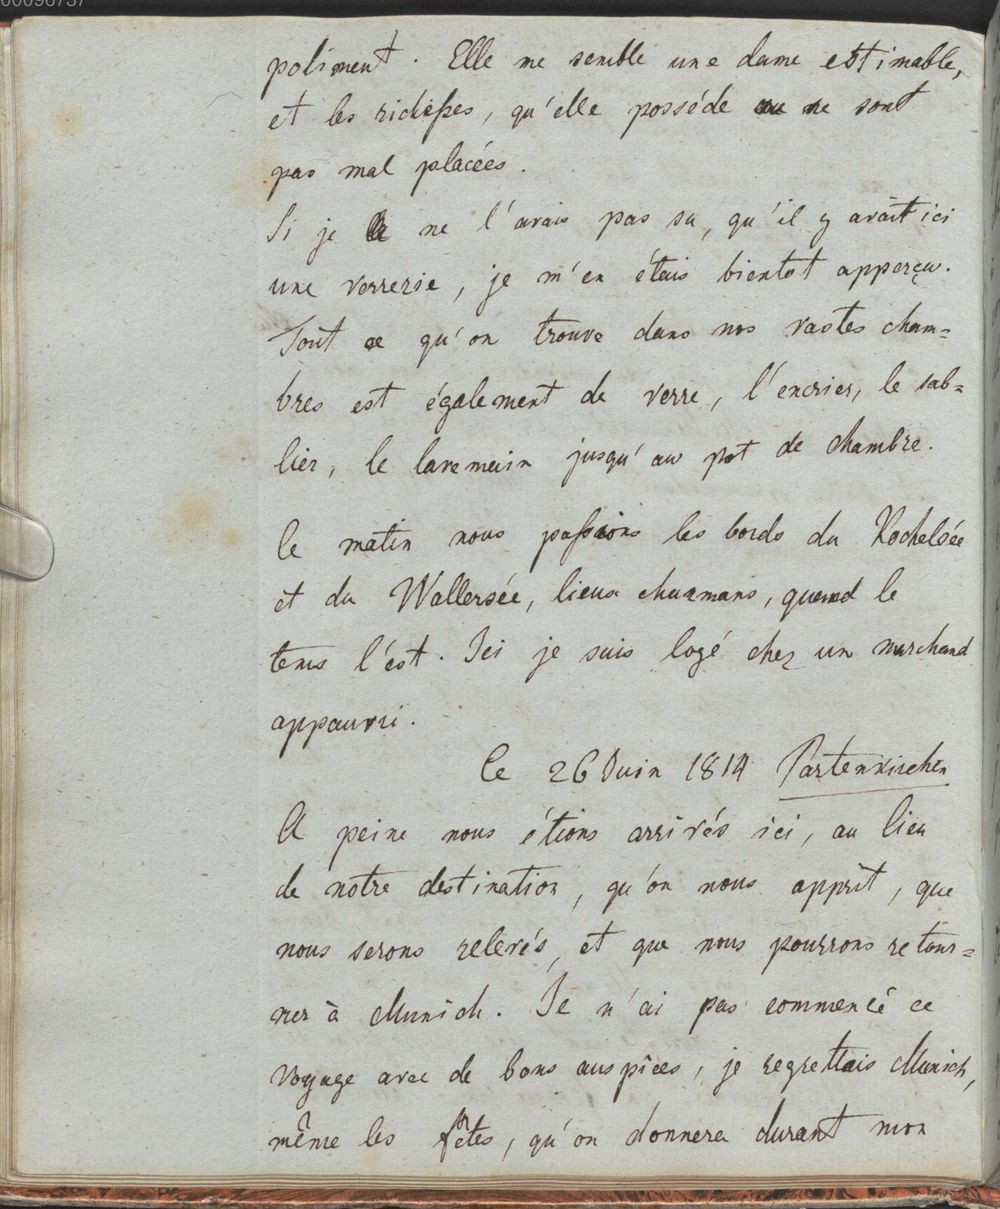 00096757
poliment. Elle me semble une dame estimable,
et les richesses, qu'elle posséde ne sont
pas mal placées.
Si je ne l'avais pas su, qu'il y avait ici
une verrerie, je m'en étais bientot apperçu.
Tout ce qu'on trouve dans nos vastes cham=
bres est également de verre, l'encrier, le sab=
lier, le lavemain jusqu'au pot de chambre.
Ce matin nous passions les bords du Kochelsée
et du Wallersée, lieux charmans, quand le
tems l'est. Ici je suis logé chez un marchand
appauvri.
Ce 26 Juin 1814 Partenkirchen
A peine nous étions arrivés ici, au lieu
de notre destination, qu'on nous apprit, que
nous serons relevés, et que nous pourrons retour=
ner à Munich. Je n'ai pas commencé ce
voyage avec de bons auspices, je regrettais Munich,
même les fêtes, qu'on donnera durant mon